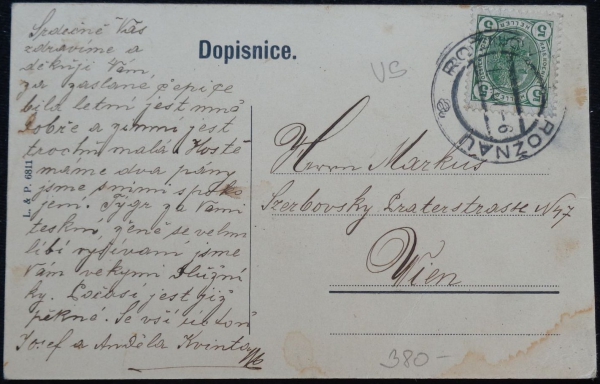 Srdečně Vás
zdravíme a
děkuji Vám,
za zaslané čepice
bíla letní jest mně
dobře a zimní jest
trochu malá. Hosté
máme dva pány
jsme s nimi spoko
jeni. Tygr za Vámi
teskní, ženě se velmi
líbí vyšívaní jsme
Vám velkymi dlužní
ky. Počasí jest již
pěkná. Se vší úctou
Josef a Anděla Kvinta
Dopisnice.
VS
L. & P. 6811
5 HELLER 5
ROŽNAU
Herrn Markus
Szerbovsky Praterstrasse N47
Wien
380-